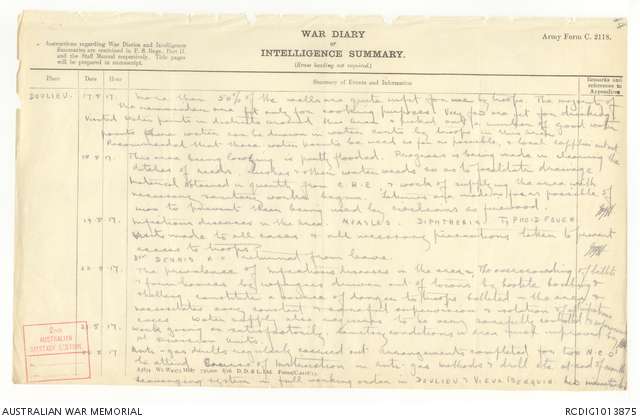 WAR DIARY
or
INTELLIGENCE SUMMARY.
(Erase heading not required.)
Army Form C. 2118.
Instructions regarding War Diaries and Intelligence
Summaries are contained in F. S. Regs., Part II.
and the Staff Manual respectively. Title pages
will be prepared in manuscript.
Place Date Hour Summary of Events and Information Remarks and
references to
Appendices
DOULIEU. 17.8.17. More than 50% of the wells are quite unfit for use by troops. The majority of
the remainder are fit only for cooking purposes. Very few are fit for drinking.
Visited water points in district and in this area a number of good water
points where water can be drawn in water carts by troops in this area.
Recommended that these water points be used as far as possible, & local supplies cut out
18.8.17. This area being low lying is partly flooded. Progress is being made in cleaning the
ditches of reeds, rushes & other water weeds so as to facilitate drainage.
Material obtained in quantity from C.R.E. & work of supplying the area with
necessary sanitary works begun. Latrines are made as far as possible of
to prevent them being used by as firewood.
19.8.17. Infectious diseases in the area. MEASLES. DIPHTHERIA TYPHOID FEVER
Visits made to all cases & all necessary precautions taken to prevent
access to troops.
DENNIS returned from leave.
The prevalence of infectious diseases in the area, the overcrowding of billets
& farm houses by refugees driven out of towns by hostile bombing &
shelling constitute a source of danger to troops billeted in the area &
necessitates very constant & careful supervision & isolation of
cases. Water supply also requires to be very carefully
.8.17. Work going on satisfactorily. Sanitary conditions in area much improved by
1st Division units.
.8.17 Anti-gas drills regularly carried out. Arrangements completed for two N.C.O's
to attend Courses of Instruction in Anti-gas methods & drill etc. at end of month
Scavenging system in full working order in DOULIEU & VIEUX BERQUIN.
2ND
AUSTRALIAN
SANITARY SECTION.
AUSTRALIAN WAR MEMORIAL
RCDIG1013875